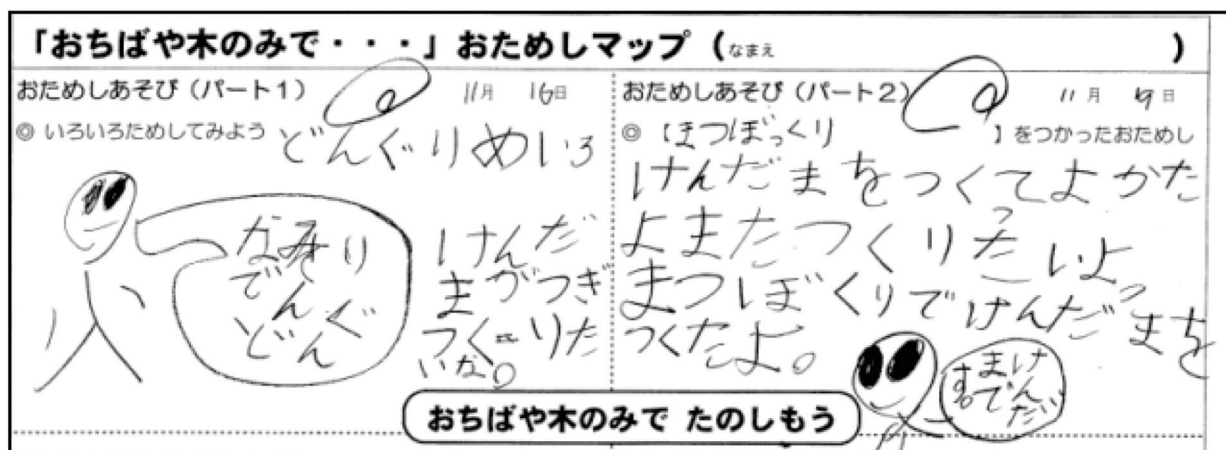 「おちばや木のみで・・・」おためしマップ（なまえ　　　）
おためしあそび（パート1）　11月　16日
◎ いろいろためしてみよう
どんぐりめいろ
けんだ
まがつぎ
つくりた
いな。
おためしあそび（パート2）　11月　19日
◎【まつぼっくり　】をつかったおためし
けんだまをつくてよかった
よまたつくりたいよ
まつぼっくりでけんだまを
つくたよ。
けんだ
まで
す。
おちばや木のみで たのしもう